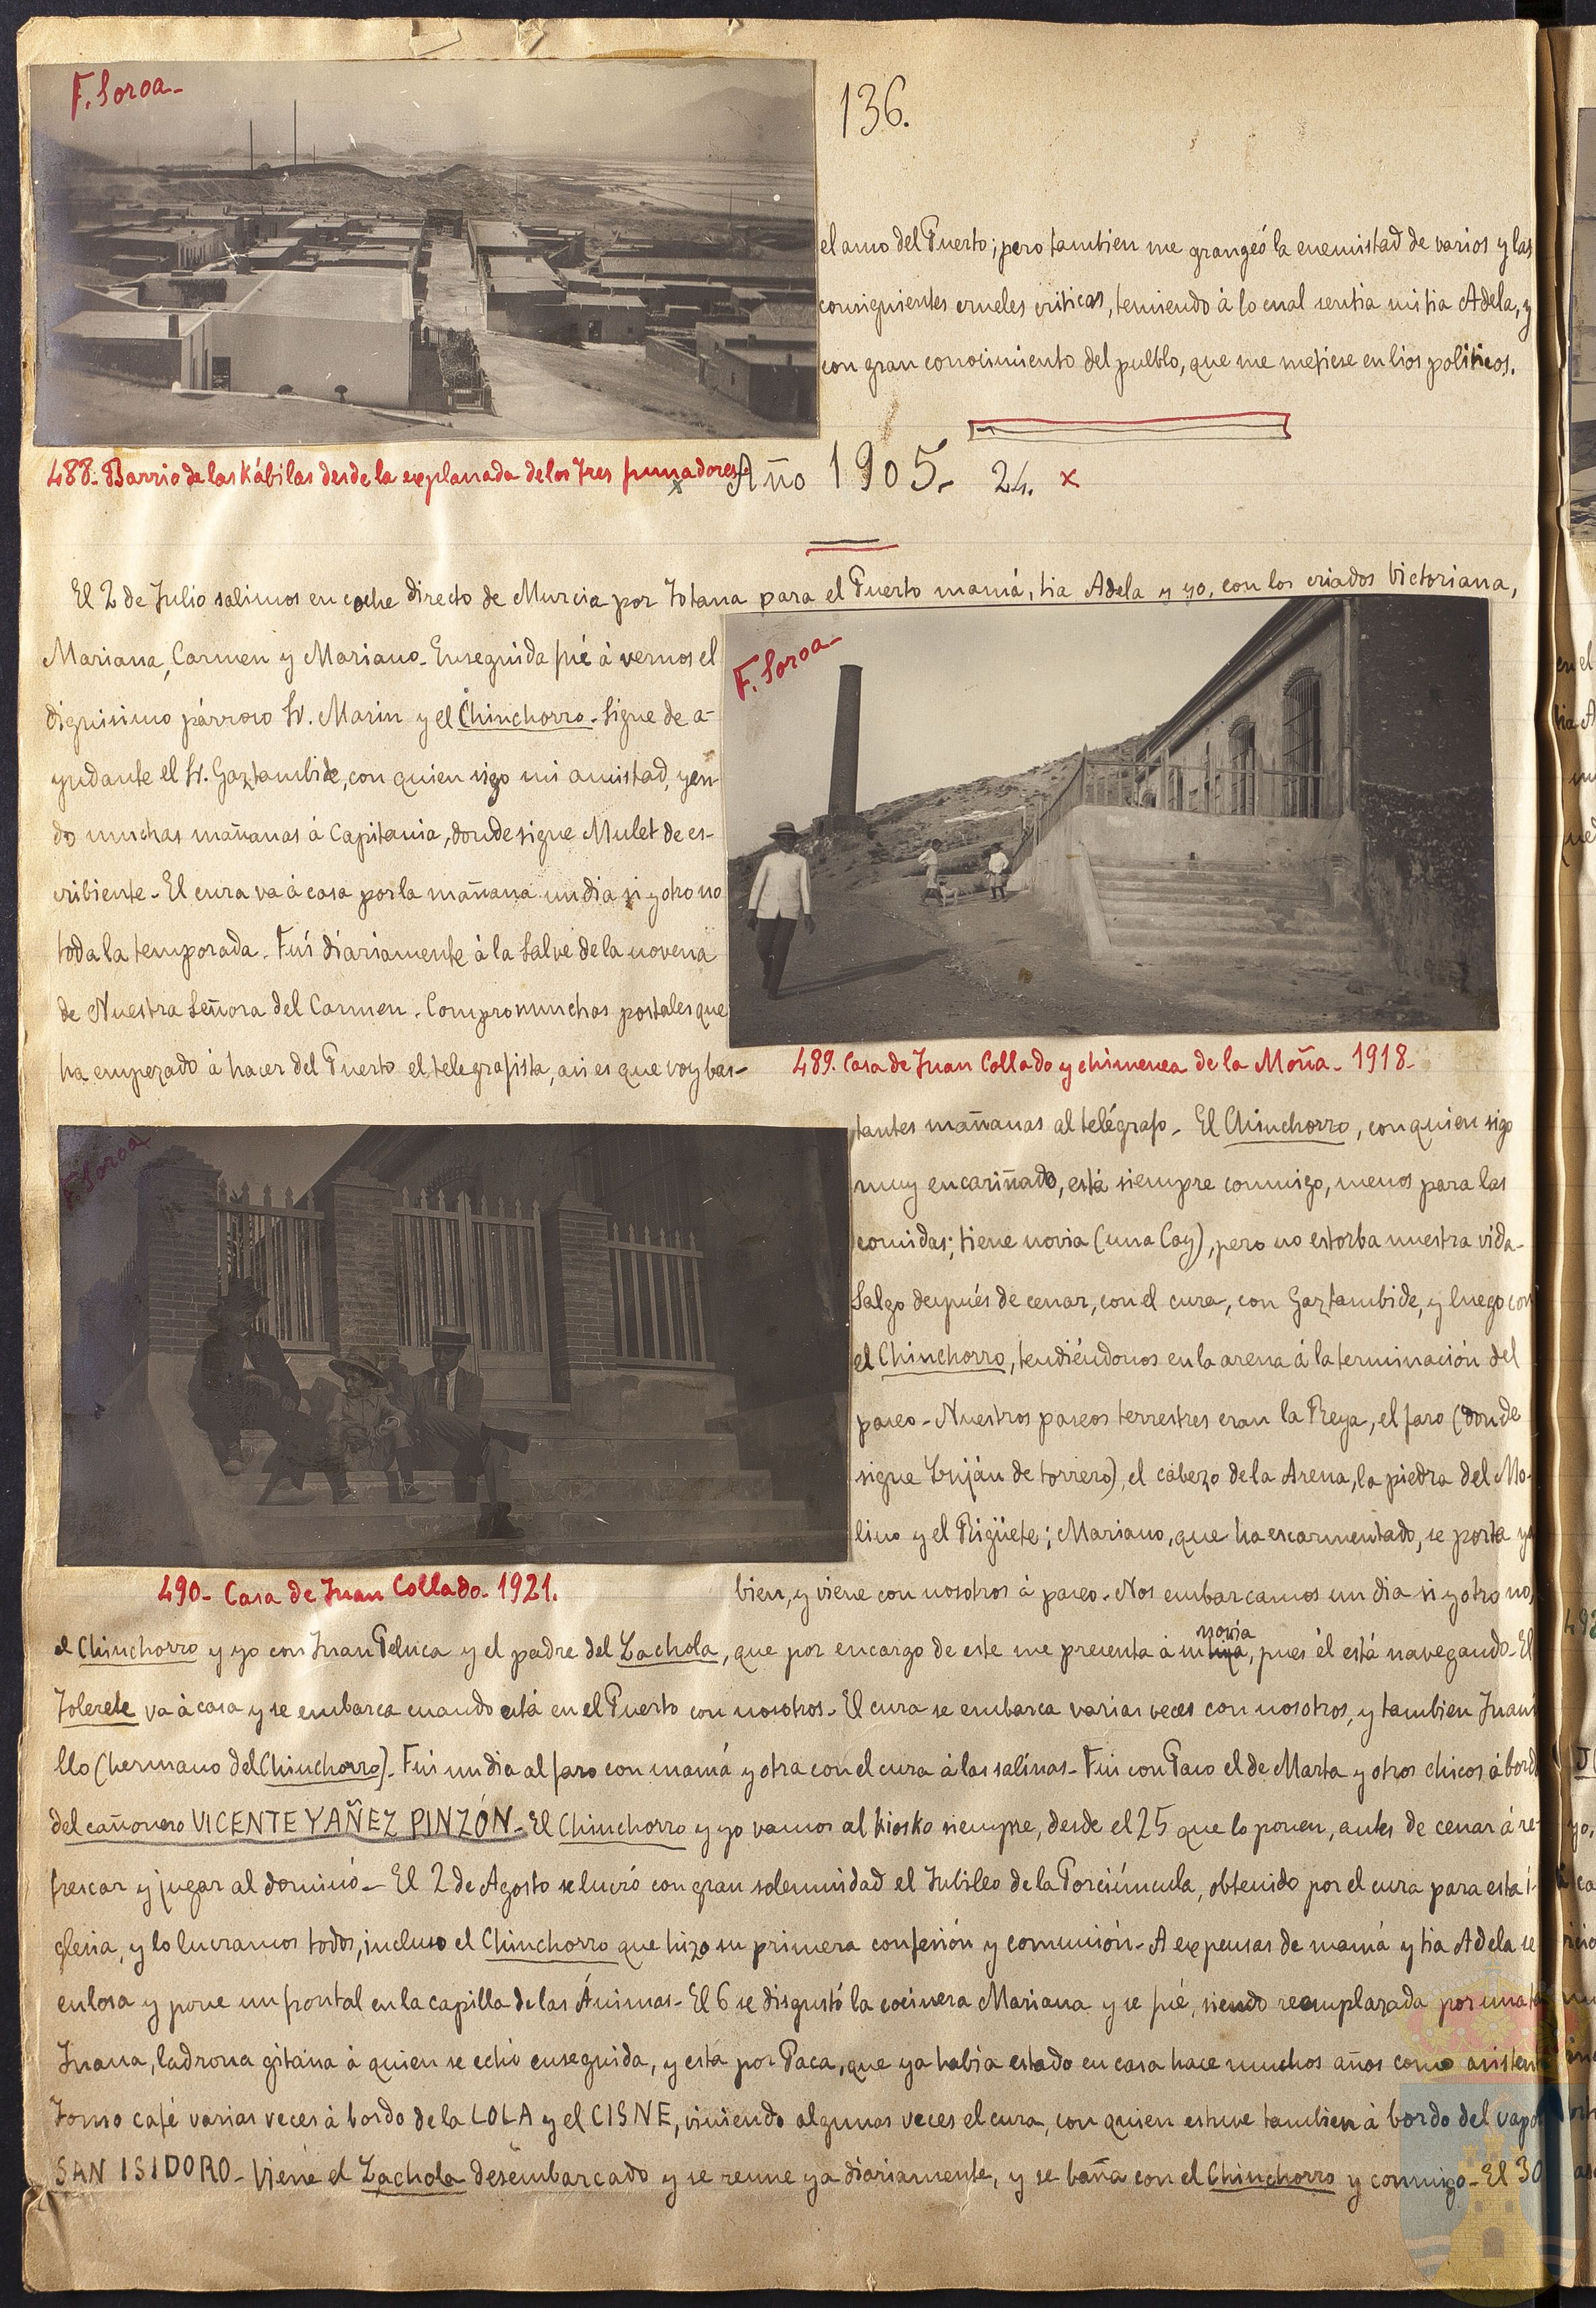 F. Soroa-
136.
el amo del Puerto; pero tambien me grangeó la enemistad de varios y las
consiguientes crueles criticas, temiendo á lo cual sentia mi tia Adela, y
con gran conocimiento del pueblo, que me metiese en lios politicos.
488- Barrio de las Kábilas desde la explanada de los Tres fumadores-
x
Año 1905- 24. x
El 2 de Julio salimos en coche directo de Murcia por Totana para el Puerto mamá, tia Adela y yo, con los criados Victoriana,
Mariana, Carmen y Mariano- Enseguida fué á vernos el
dignisimo párroco Sr. Marin y el Chinchorro- Sigue de a-
yudante el Sr. Gaztambide, con quien sigo mi amistad, yen-
do muchas mañanas á Capitania, donde sigue Mulet de es-
cribiente- El cura va á casa por la mañana un dia si y otro no
toda la temporada- Fuí diariamente á la Salve de la novena
de Nuestra Señora del Carmen- Compro muchas postales que
ha empezado á hacer del Puerto el telegrafista, asi es que voy bas-
F. Soroa-
489. Casa de Juan Collado y chimenea de la Moña- 1918-
tantes mañanas al telégrafo- El Chinchorro, con quien sigo
muy encariñado, está siempre conmigo, menos para las
comidas; tiene novia (una Coy), pero no estorba nuestra vida-
Salgo después de cenar, con el cura, con Gaztambide, y luego con
el Chinchorro, tendiéndonos en la arena á la terminación del
paseo- Nuestros paseos terrestres eran la Reya, el faro (donde
sigue Luján de torrero), el cabezo de la Arena, la piedra del Mo-
lino y el Rigüete; Mariano, que ha escarmentado, se porta ya
F. Soroa
490- Casa de Juan Collado- 1921.
bien, y viene con nosotros á paseo- Nos embarcamos un dia si y otro no,
el Chinchorro y yo con Juan Peluca y el padre del Zachola, que por encargo de este me presenta á su novia, pues él está navegando- El
Tolerete va á casa y se embarca cuando está en el Puerto con nosotros- El cura se embarca varias veces con nosotros, y tambien Juani
llo (hermano del Chinchorro)- Fui un dia al faro con mamá y otra con el cura á las salinas- Fui con Paco el de Marta y otros chicos á bordo
del cañonero VICENTE YAÑEZ PINZÓN- El Chinchorro y yo vamos al kiosko siempre, desde el 25 que lo ponen, antes de cenar á re-
frescar y jugar al dominó- El 2 de Agosto se lucró con gran solemnidad el Jubileo de la Porciúncula, obtenido por el cura para esta i-
glesia, y lo lucramos todos, incluso el Chinchorro que hizo su primera confesión y comunión- A expensas de mamá y tia Adela se
enlosa y pone un frontal en la capilla de las Ánimas- El 6 se disgustó la cocinera Mariana y se fué, siendo reemplazada por una tal
Juana, ladrona gitana á quien se echó enseguida, y está por Paca, que ya habia estado en casa hace muchos años como asistenta
Tomo café varias veces á bordo de la LOLA y el CISNE, viniendo algunas veces el cura, con quien estuve tambien á bordo del vapor
SAN ISIDORO- Viene el Zachola desembarcado y se reune ya diariamente, y se baña con el Chinchorro y conmigo- El 30